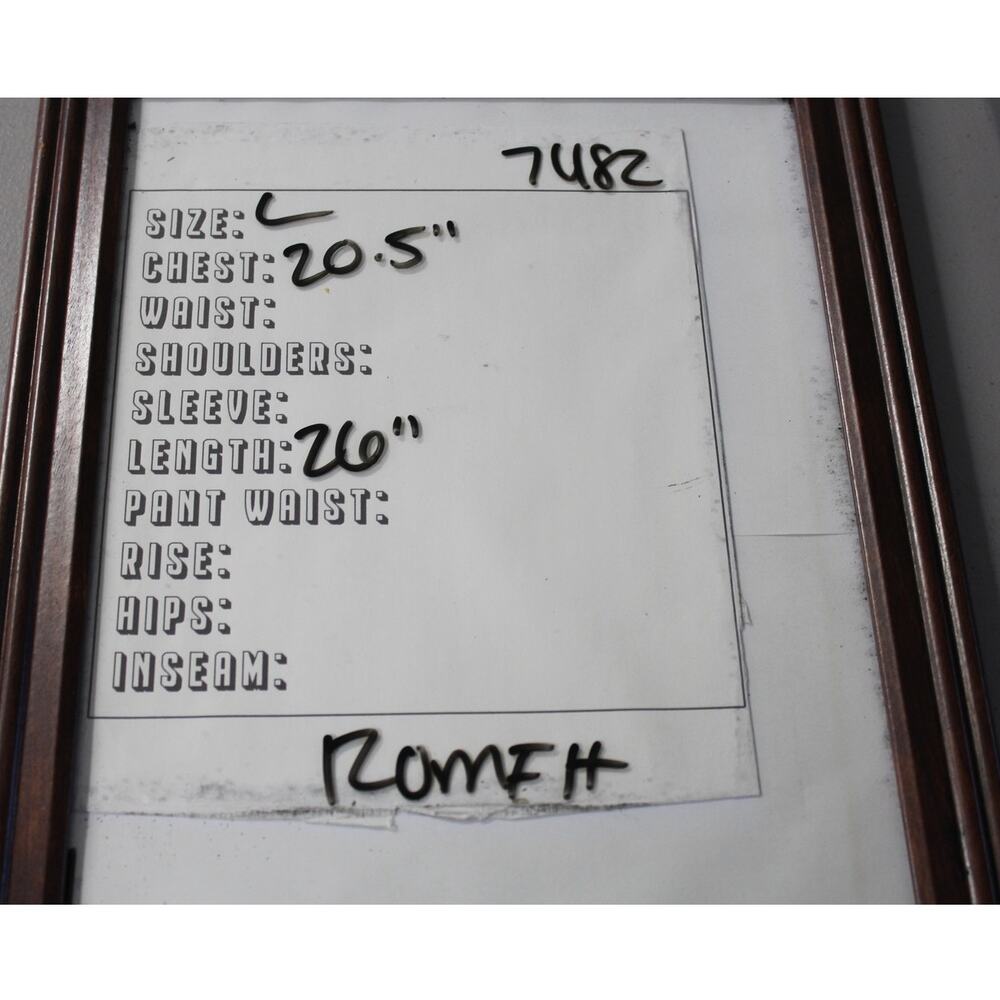 7482
SIZE: L
CHEST: 20.5"
WAIST:
SHOULDERS:
SLEEVE:
LENGTH: 26"
PANT WAIST:
RISE:
HIPS:
INSEAM: